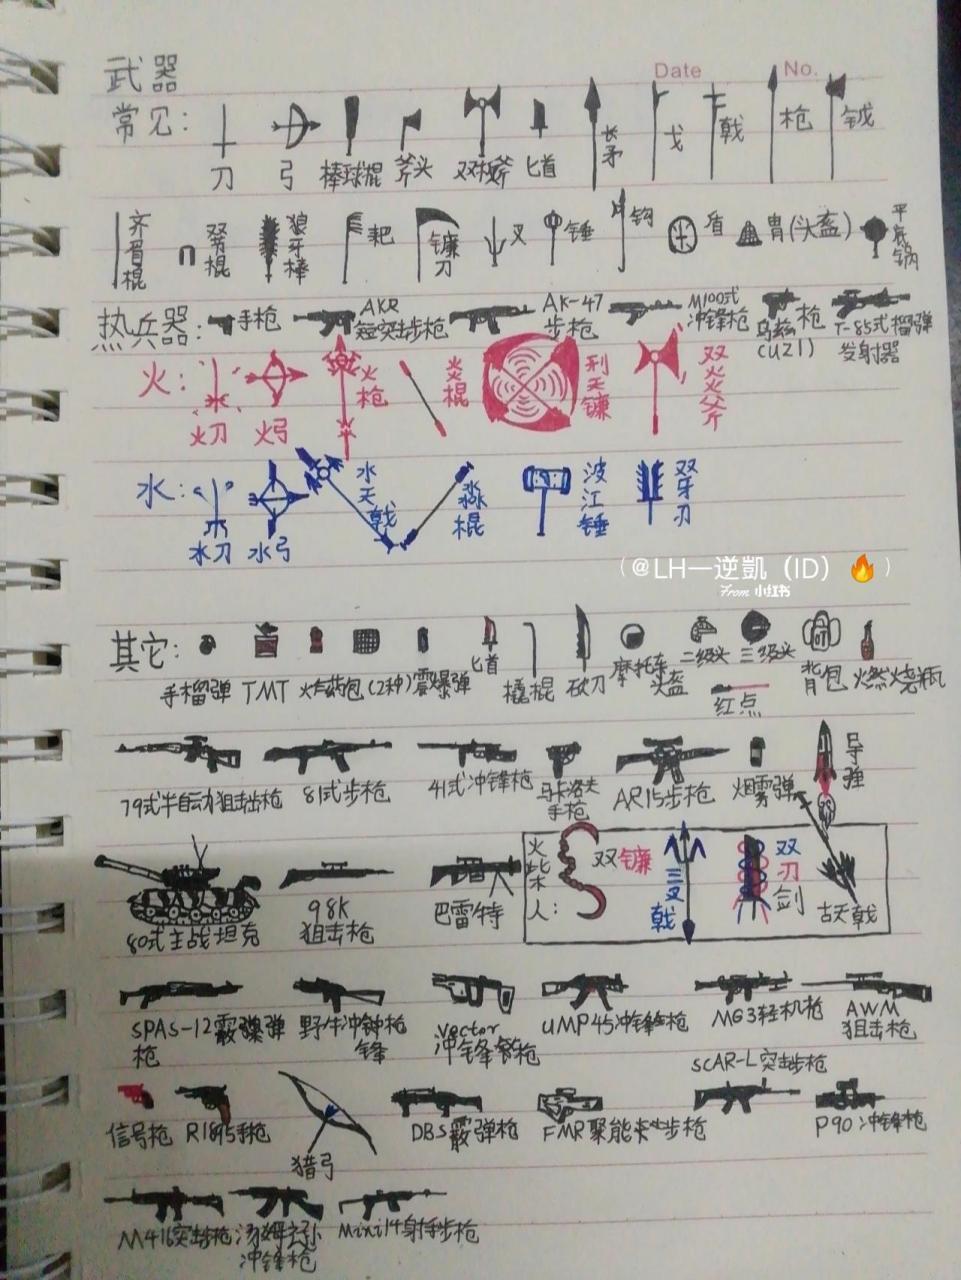 Date No.
武器
常见：
刀 弓 棒球棍 斧头 双板斧 匕首 长矛 戈 戟 枪 钺
齐眉棍 双节棍 狼牙棒 耙 镰刀 叉 锤 钩 盾 胃(头盔) 平底锅
热兵器： 手枪 AKR短突击步枪 AK-47步枪 M100式冲锋枪 乌兹枪(UZI) T-85式榴弹发射器
火： 火刀 火弓 火枪 炎棍 刑天镰 双火斧
水： 水刀 水弓 水天戟 淼棍 波江锤 双牙刃
(@LH一逆凱（ID）🔥)
From 小红书
其它： 手榴弹 TMT 炸药包(2种) 震爆弹 匕首 撬棍 砍刀 摩托车头盔 二级头 三级头 背包 燃烧瓶
红点
79式半自动狙击枪 81式步枪 41式冲锋枪 马卡洛夫手枪 AR15步枪 烟雾弹 导弹
80式主战坦克 98K狙击枪 巴雷特 火柴人： 双镰 三叉戟 双刃剑 古天戟
SPAS-12霰弹枪 野牛冲锋枪 vector冲锋枪 UMP45冲锋枪 MG3轻机枪 AWM狙击枪
SCAR-L突击步枪
信号枪 R1895手枪 猎弓 DBS霰弹枪 FMR聚能步枪 P90冲锋枪
M416突击步枪 汤姆逊冲锋枪 Mini14射手步枪